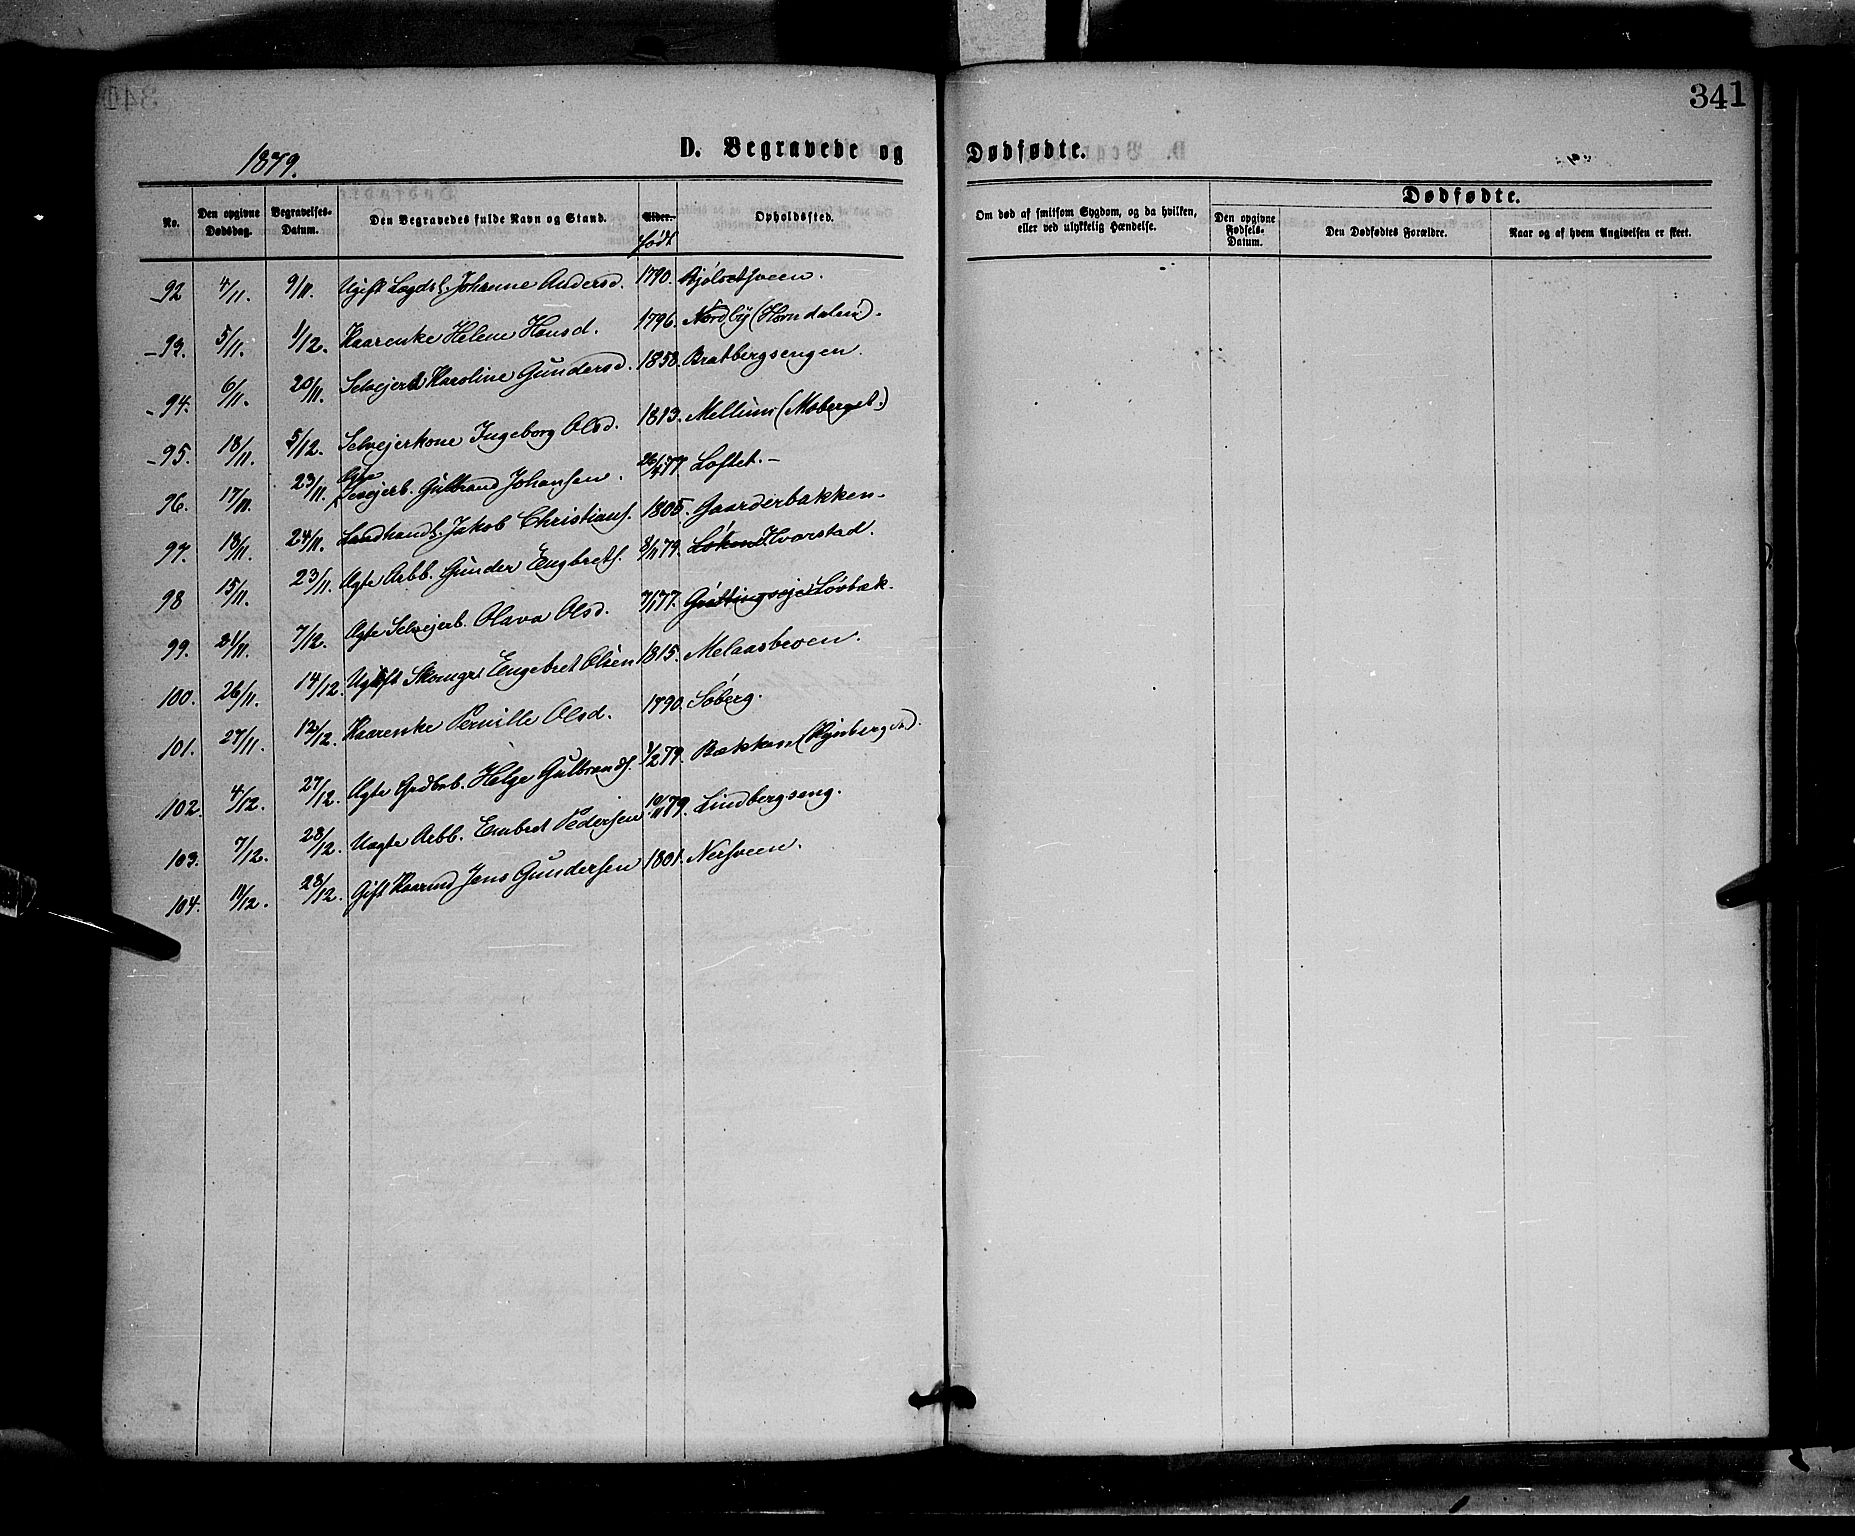 341
1879.
D. Begravede og Dødfødte.
No.
Den opgivne Dødsdag.
Begravelses-Datum.
Den Begravedes fulde Navn og Stand.
Alder.
født
Opholdssted.
Om død af smitsom Sygdom, og da hvilken, eller ved ulykkelig Hændelse.
Dødfødte.
Den opgivne Fødsels-Datum.
Den Dødfødtes Forældre.
Naar og af hvem Angivelsen er skeet.
92 4/11. 9/11. Ugift Lægdsl. Johanne Andersd. 1790. Bjølsetsveen.
93. 5/11. 1/12. Kaarenke Helene Hansd. 1796. Nordby (Horndalen).
94. 6/11. 20/11. Selvejerd. Karoline Gundersd. 1858. Bratbergsengen.
95. 18/11. 5/12. Selvejerkone Ingeborg Olsd. 1813. Mellum (Moberget.)
96. 17/11. 23/11. Ægte Selvejerb. Gulbrand Johansen. 77. Loftet.
97. 18/11. 24/11. Landhandl. Jakob Christians. 1805. Gaarderbakken
98 15/11. 23/11. Ægte Arbb. Gunder Engbrets. 8/11 79. Løken Hvarstad.
99. 21/11. 7/12. Ægte Selvejerb. Olava Olsd. 7/1 77. Løvbæk.
100. 26/11. 14/12. Ugift Skomgr. Engebret Olsen 1815. Melaasbroen.
101. 27/11. 12/12. Kaarenke Pernille Olsd. 1790. Søberg.
102. 4/12. 27/12. Ægte Grdbrb. Helge Gulbrands. 1/2 79. Bækken
103. 7/12. 28/12. Uægte Arbb. Embret Pedersen 10/11 79. Lindbergseng.
104. 11/12. 28/12. Gift Kaarmd Jens Gundersen 1801. Nersveen.